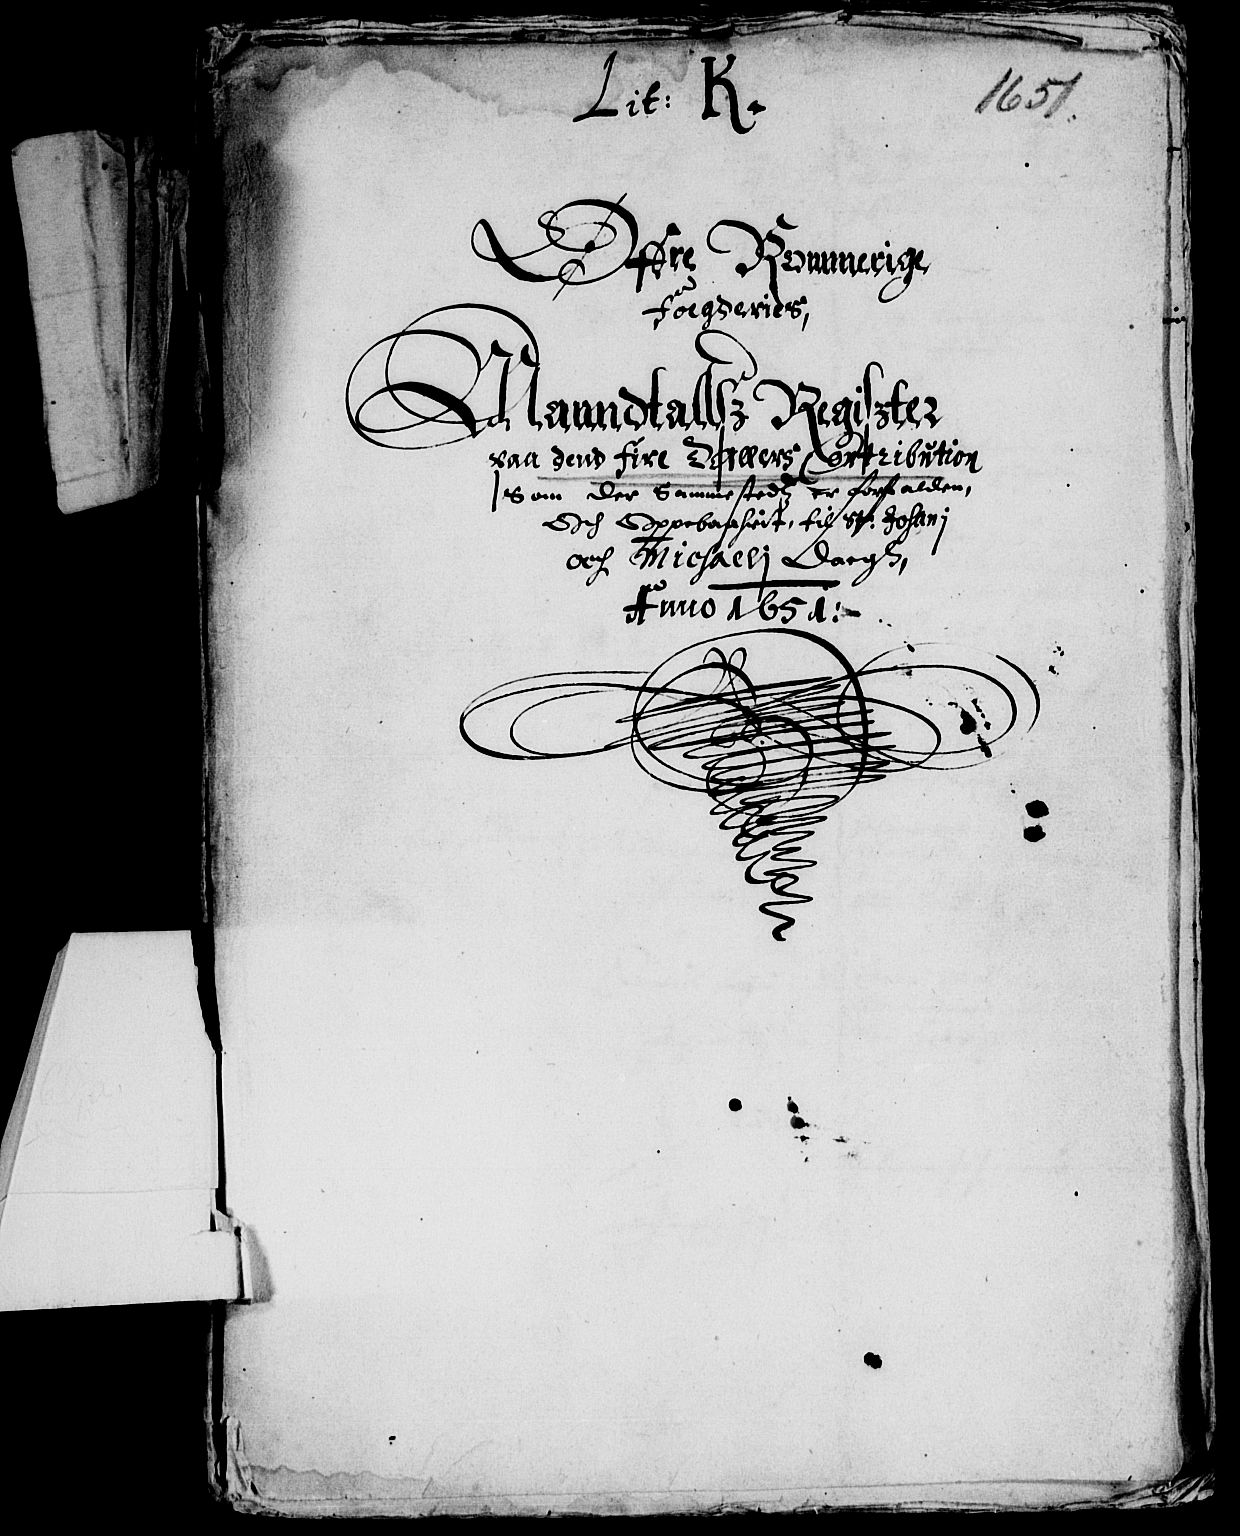 Lit: K.
1651.
Øffre Rommerige
foegderies,
Manndtallsz Register
paa dend fire Dallers Contribution
Som der Sammestedtz er forfalden,
Och Oppebaarhit, til St: Johanj
och Michaelj Daegh,
Anno 1651: